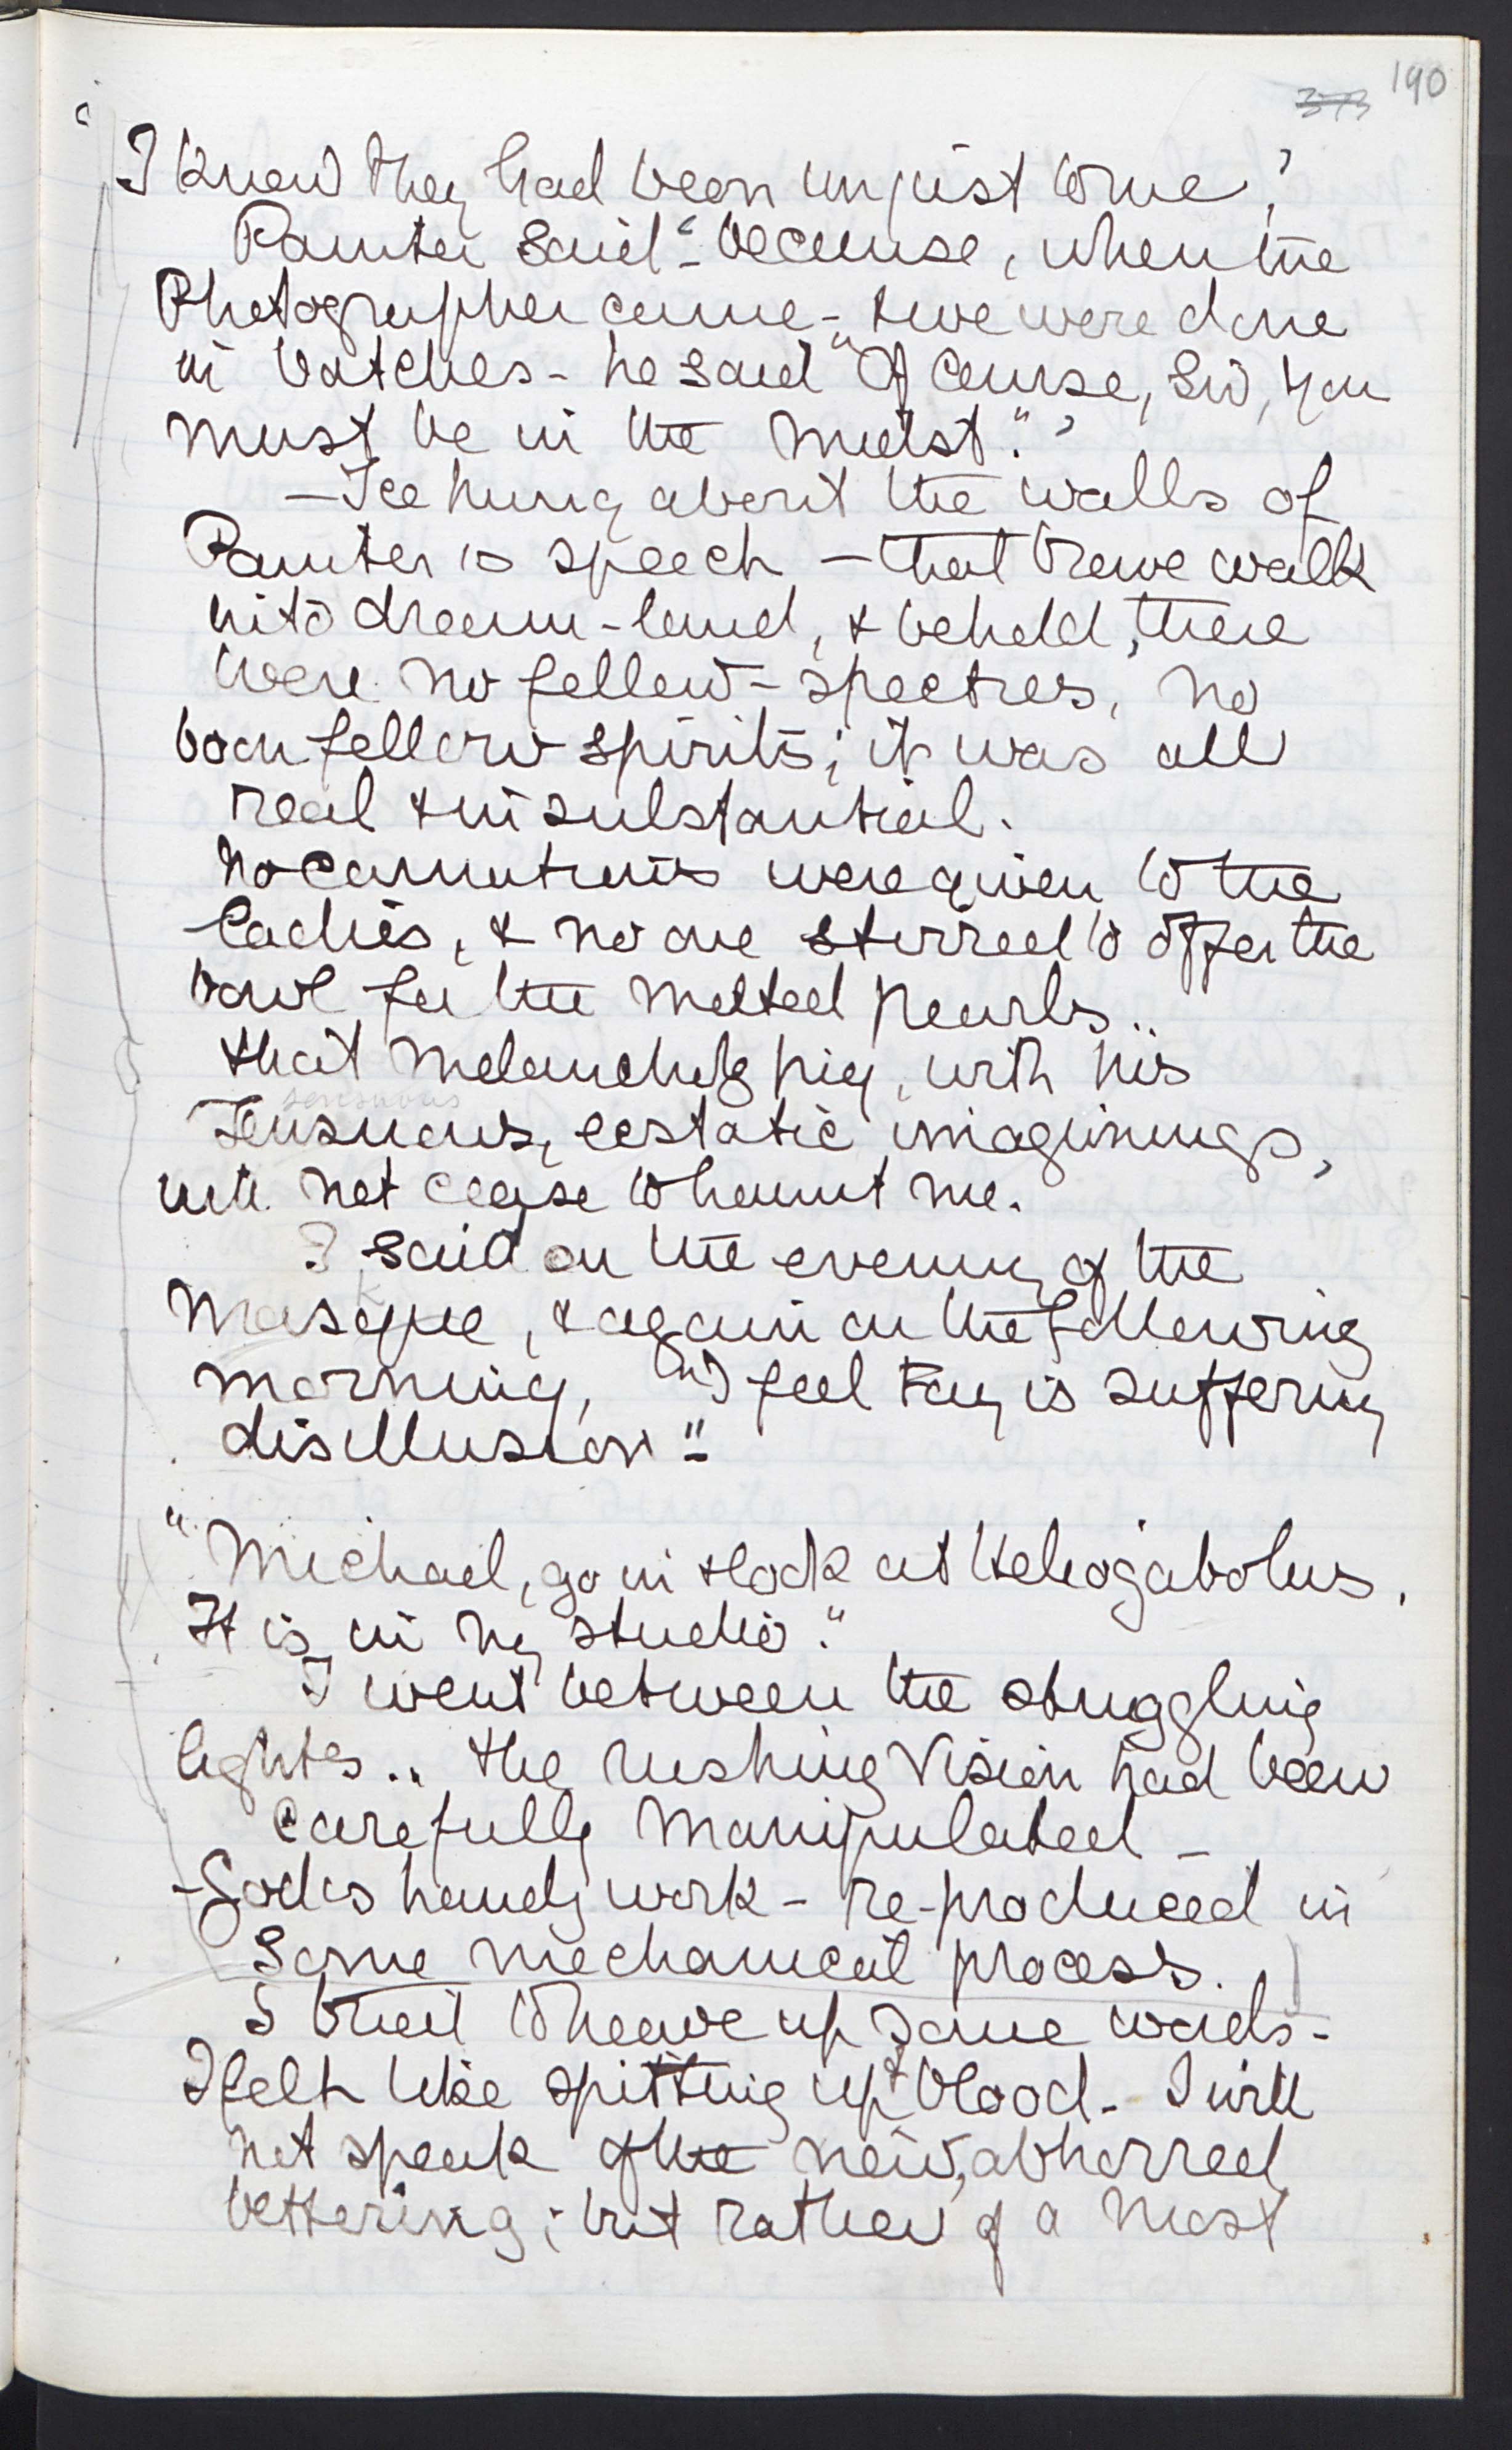 190
373
I knew they had been unjust to me,'
Painter said '- because, when the
Photographer came - & we were done
in batches - he said "Of course, Sir, you
must be in the midst."'
— Ice hung about the walls of
Painter's speech — that brave walk
into dream-land, & behold, there
were no fellow-spectres, no
boon fellow spirits; it was all
real & insubstantial.
No carnations were given to the
ladies, & no one stirred to offer the
bowl for the melted pearls..
that melancholy pig, with his
sensuous
Sensuous, ecstatic imaginings,
will not cease to haunt me.
I said on the evening of the
Masque, & again on the following
morning, "I feel Fay is suffering
disillusion"-
"Michael, go in & look at Heliogabolus.
It is in my studio."
I went between the struggling
lights.. the rushing Vision had been
carefully manipulated -
- God's handy work - re-produced in
some mechanical process.
I tried to heave up some words -
I felt like spitting up blood - I will
not speak of the new, abhorred
bettering; but rather of a most